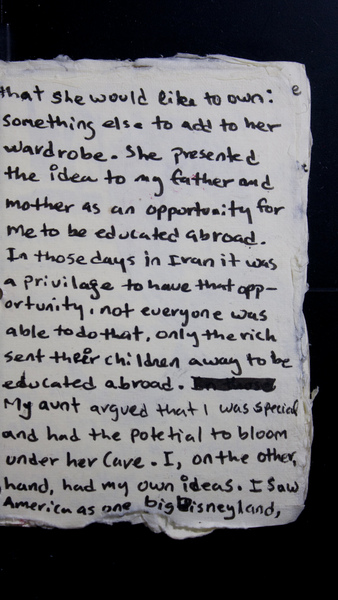 that she would like to own:
something else to add to her
wardrobe. She presented
the idea to my father and
mother as an opportunity for
me to be educated abroad.
In those days in Iran it was
a privilage to have that opp-
ortunity, not everyone was
able to do that, only the rich
sent their children away to be
educated abroad.
My aunt argued that I was special
and had the potetial to bloom
under her Care. I, on the other,
hand, had my own ideas. I saw
America as one big Disneyland,